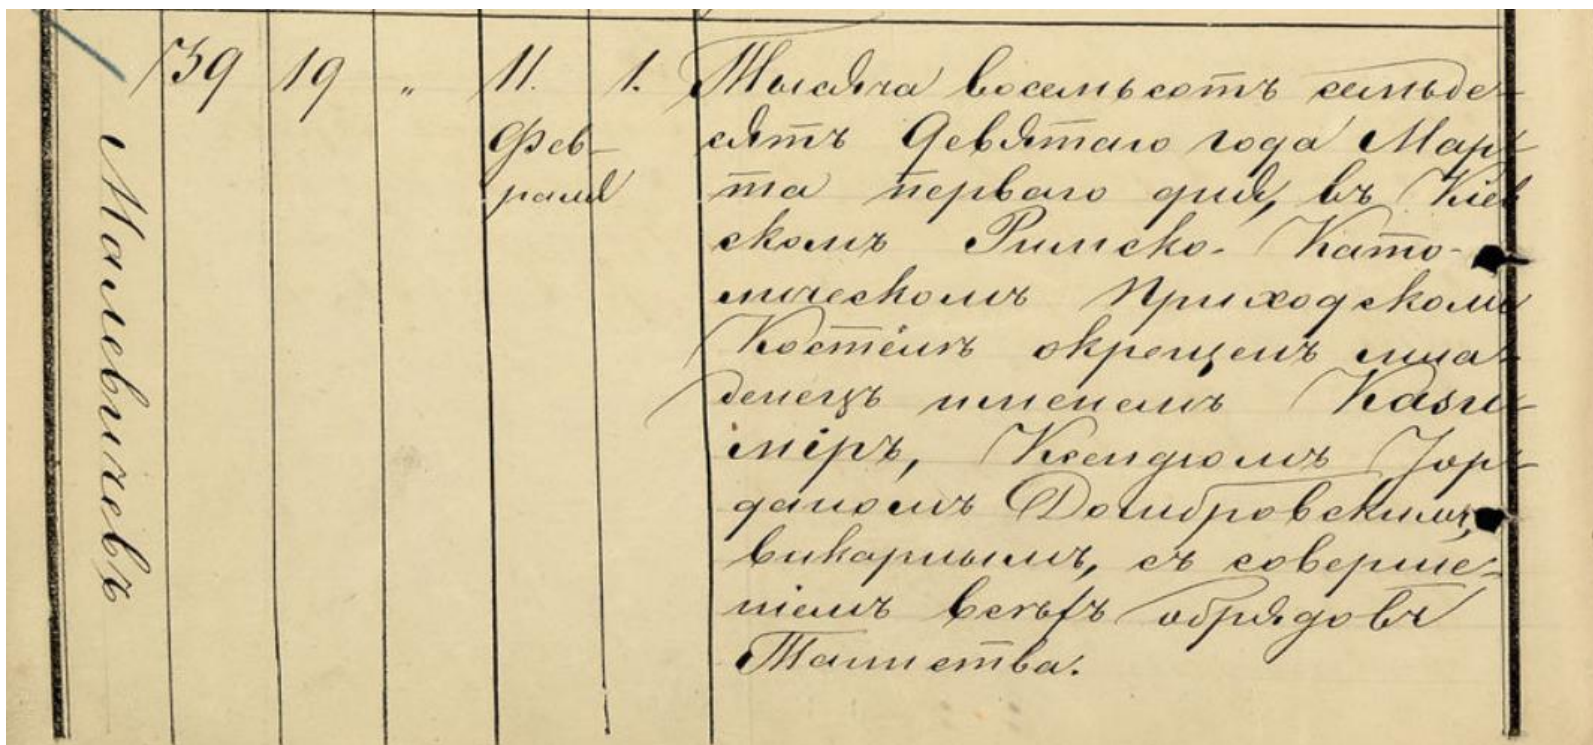 Малевичевъ
39 19 " 11. 1.
Фев-
раля
Тысяча восемьсотъ семьде-
сятъ девятаго года Мар-
та перваго дня, въ Кіев
скомъ Римско-Като-
лическомъ Приходскомъ
Костёлѣ окрещенъ мла-
денецъ именемъ Кази-
міръ, Ксендзомъ Іор-
даномъ Домбровскимъ,
викарнымъ, съ соверше-
ніемъ всѣхъ обрядовъ
Таинства.